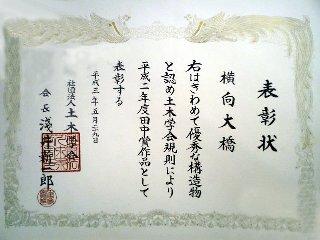 表彰状
横向大橋
右はきわめて優秀な構造物
と認め土木学会規則により
平成二年度田中賞作品として
表彰する
平成三年五月二九日
社団法人土木学会
会長